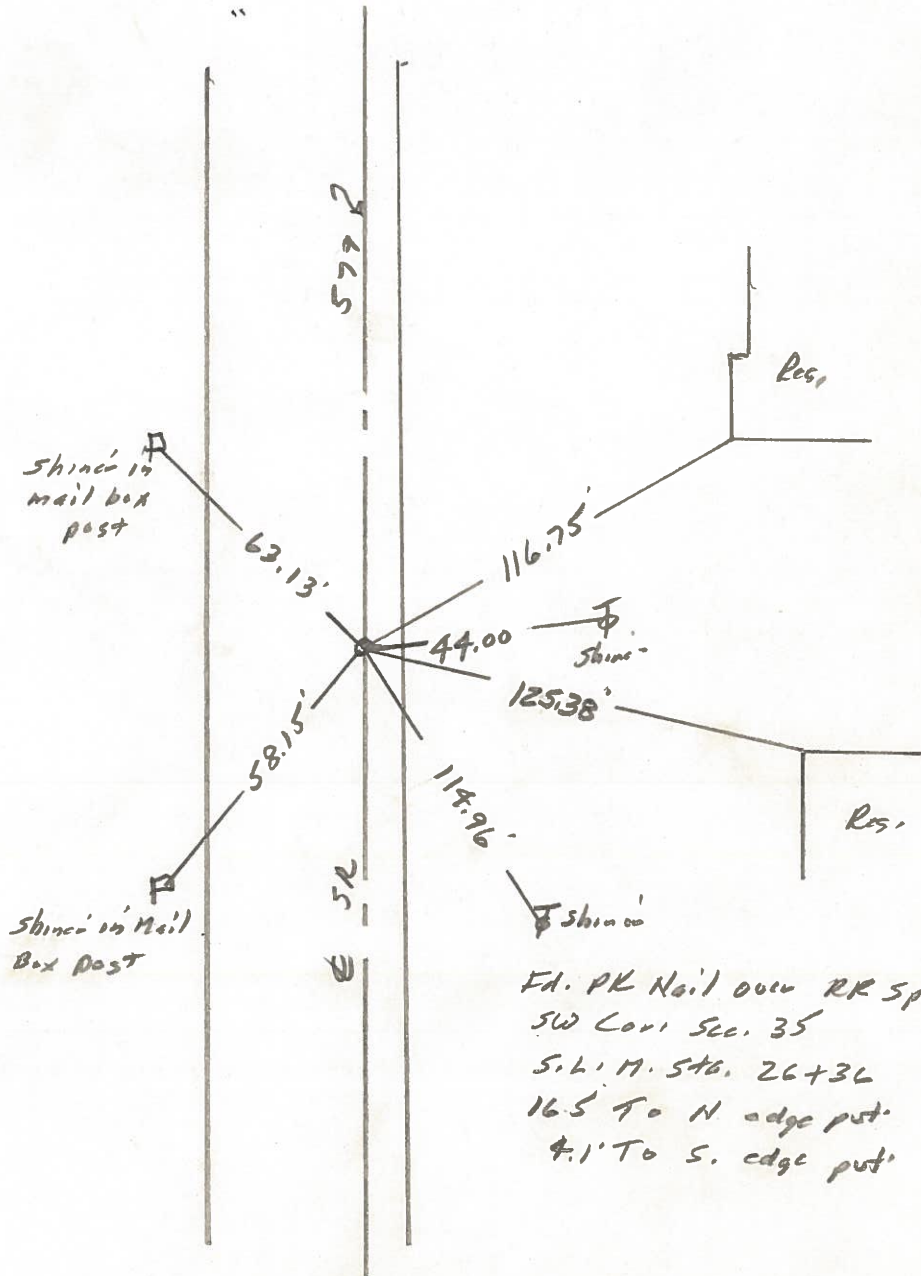 Res.
Shiner in
mail box
post
63.13'
116.75'
44.00
Shiner
125.38'
58.15'
114.96'
Res.
SR
Shiner in Mail
Box post
Shiner
Fd. PK Nail over RR Sp
SW Cor. Sec. 35
S.L.M. Sta. 26+36
16.5 To N edge pvt.
4.1' To S. edge pvt.